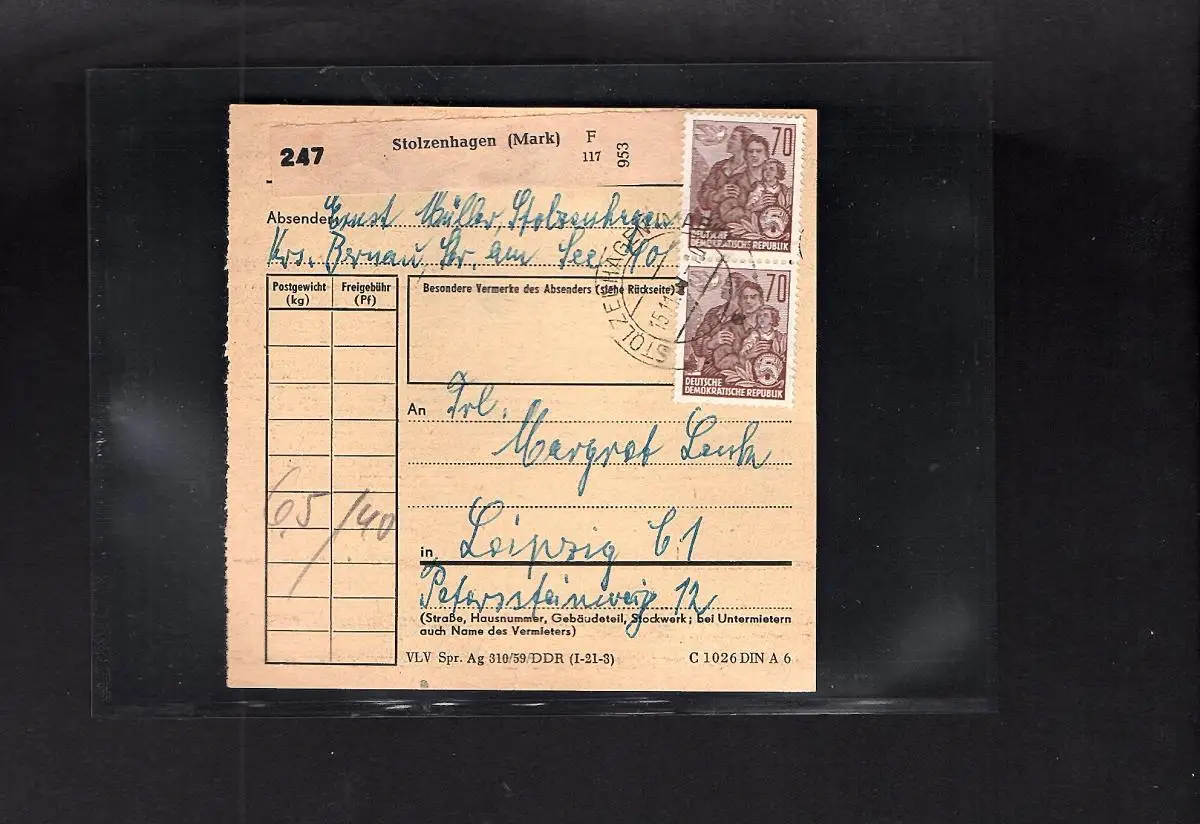 247
Stolzenhagen (Mark)
F
117
953
Absender Ernst Müller, Stolzenhagen
Krs. Bernau, Str. am See 40
Postgewicht (kg)
Freigebühr (Pf)
Besondere Vermerke des Absenders (siehe Rückseite)
STOLZENHAGEN (MARK)
15.11
70
5
DEUTSCHE
DEMOKRATISCHE REPUBLIK
70
5
DEUTSCHE
DEMOKRATISCHE REPUBLIK
An Frl.
Margrat
65 /40
in Leipzig C 1
Peterssteinweg 12
(Straße, Hausnummer, Gebäudeteil, Stockwerk; bei Untermietern
auch Name des Vermieters)
VLV Spr. Ag 310/59/DDR (I-21-3)
C 1026 DIN A 6